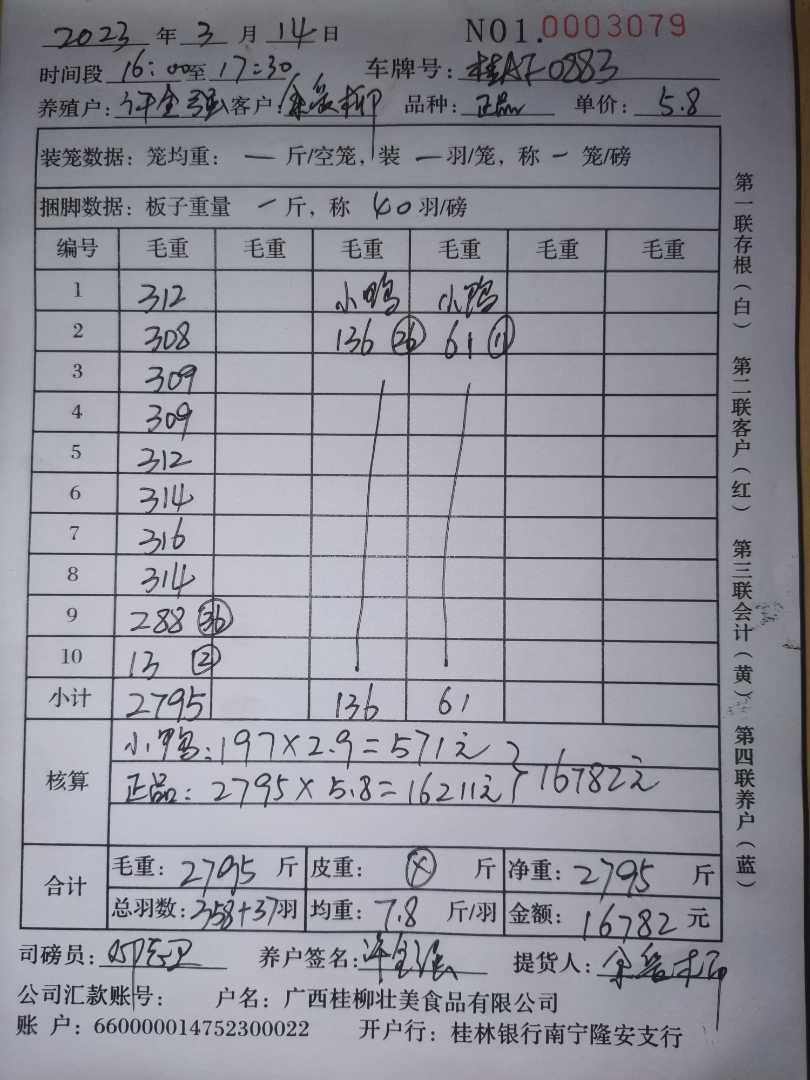 2023 年 3 月 14 日 NO1.0003079
时间段 16:00至17:30 车牌号:桂AF0883
养殖户:许全强 客户: 品种:正品 单价:5.8
装笼数据:笼均重:一斤/空笼,装一羽/笼,称一笼/磅
捆脚数据:板子重量 一斤,称 40羽/磅
编号 毛重 毛重 毛重 毛重 毛重 毛重
1 312 小鸭 小鸭
2 308 136 26 61 11
3 309
4 309
5 312
6 314
7 316
8 314
9 288 36
10 13 2
小计 2795 136 61
核算
小鸭:197×2.9=571元
正品:2795×5.8=16211元 } 16782元
合计
毛重:2795斤 皮重:×斤 净重:2795斤
总羽数:358+37羽 均重:7.8斤/羽 金额:16782元
司磅员: 养户签名:许全强 提货人:
公司汇款账号: 户名:广西桂柳壮美食品有限公司
账 户:660000014752300022 开户行:桂林银行南宁隆安支行
第一联存根(白) 第二联客户(红) 第三联会计(黄) 第四联养户(蓝)